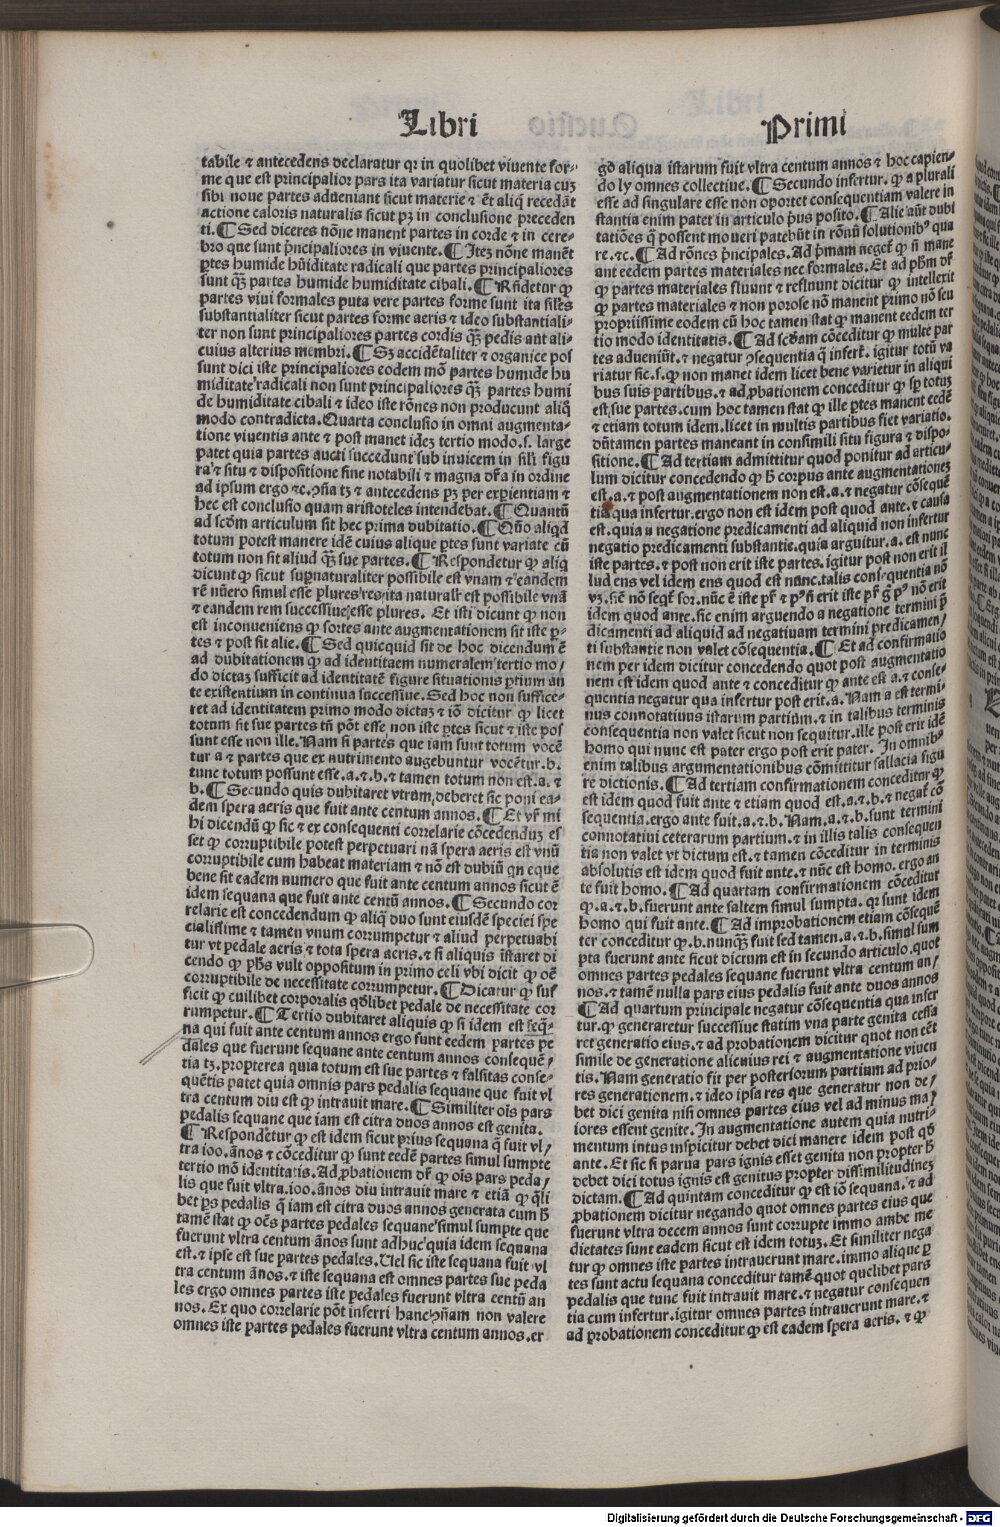 Libri
Primi
tabile ⁊ antecedens declaratur qꝛ in quolibet viuente for-
me que est principalior pars ita variatur sicut materia cuȝ
sibi noue partes adueniant sicut materie ⁊ ēt aliq̄ recedāt
actione caloris naturalis sicut pȝ in conclusione preceden
ti. ¶ Sed diceres nōne manent partes in corde ⁊ in cere-
bro que sunt p̄ncipaliores in viuente. ¶ Iteȝ nōne manēt
ꝑtes humide hūiditate radicali que partes principaliores
sunt q̄ȝ partes humide humiditate cibali. ¶ Rñdetur ꝙ
partes viui formales puta vere partes forme sunt ita files
substantialiter sicut partes forme aeris ⁊ ideo substantiali-
ter non sunt principaliores partes cordis q̄ȝ pedis aut ali-
cuius alterius membri. ¶ Sȝ accidētaliter ⁊ organice pos
sunt dici iste principaliores eodem mō partes humide hu
miditate radicali non sunt principaliores q̄ȝ partes humi
de humiditate cibali ⁊ ideo iste rōnes non producunt aliq̄
modo contradicta. Quarta conclusio in omni augmenta-
tione viuentis ante ⁊ post manet ideȝ tertio modo. s. large
patet quia partes aucti succedunt sub inuicem in sili figu
ra ⁊ situ ⁊ dispositione sine notabili ⁊ magna dr̄a in ordine
ad ipsum ergo ⁊c. ꝯña tȝ ⁊ antecedens pȝ per exꝑientiam ⁊
hec est conclusio quam aristoteles intendebat. ¶ Quantū
ad scd̄m articulum sit hec prima dubitatio. ¶ Qūo aliqd
totum potest manere idē cuius alique ꝑtes sunt variate cū
totum non sit aliud q̄ȝ sue partes. ¶ Respondetur ꝙ aliq
dicunt ꝙ sicut suꝑnaturaliter possibile est vnam ⁊ eandem
rē nūero simul esse plures res ita naturalr̄ est possibile vnā
⁊ eandem rem successiue esse plures. Et isti dicunt ꝙ non
est inconueniens ꝙ sortes ante augmentationem sit iste ꝑ-
tes ⁊ post sit alie. ¶ Sed quicquid sit de hoc dicendum ē
ad dubitationem ꝙ ad identitaem numeralem tertio mo/
do dictaȝ sufficit ad identitatē figure situationis ꝑtium an
te existentium in continua successiue. Sed hoc non suffice-
ret ad identitatem primo modo dictaȝ ⁊ iō dicitur ꝙ licet
totum sit sue partes tn̄ pōt esse non iste ꝑtes sicut ⁊ iste pos
sunt esse non ille. Nam si partes que iam sunt totum vocē
tur a ⁊ partes que ex nutrimento augebuntur vocētur. b.
tunc totum possunt esse. a. ⁊. b. ⁊ tamen totum non est. a. ⁊
b. ¶ Secundo quis dubitaret vtrum deberet sic poni ea-
dem spera aeris que fuit ante centum annos. ¶ Et vr̄ mi
hi dicendū ꝙ sic ⁊ ex consequenti correlarie cōcedenduȝ es
set ꝙ corruptibile potest perpetuari nā spera aeris est vnū
corruptibile cum habeat materiam ⁊ nō est dubiū qn eque
bene sit eadem numero que fuit ante centum annos sicut ē
idem sequana que fuit ante centū annos. ¶ Secundo cor
relarie est concedendum ꝙ aliq̄ duo sunt eiusdē speciei spe
cialissime ⁊ tamen vnum corrumpetur ⁊ aliud perpetuabi
tur vt pedale aeris ⁊ tota spera aeris. ⁊ si aliquis īstaret di
cendo ꝙ pħs vult oppositum in primo celi vbi dicit ꝙ oē
corruptibile de necessitate corrumpetur. ¶ Dicatur ꝙ suf
ficit ꝙ cuilibet corporalis qd̄libet pedale de necessitate cor
rumpetur. ¶ Tertio dubitaret aliquis ꝙ si idem est seq̄-
na qui fuit ante centum annos ergo sunt eedem partes pe
dales que fuerunt sequane ante centum annos consequē/
tia tȝ. propterea quia totum est sue partes ⁊ falsitas conse-
quētis patet quia omnis pars pedalis sequane que fuit vl
tra centum diu est ꝙ intrauit mare. ¶ Similiter oīs pars
pedalis sequane que iam est citra duos annos est genita.
¶ Respondetur ꝙ est idem sicut prius sequana q̄ fuit vl/
tra ioo. ānos ⁊ cōceditur ꝙ sunt eedē partes simul sumpte
tertio mō identitatis. Ad ꝓbationem dr̄ ꝙ oīs pars peda/
lis que fuit vltra. ioo. ānos diu intrauit mare ⁊ etiā ꝙ q̄li
bet ꝑs pedalis q̄ iam est citra duos annos generata cum ħ
tamē stat ꝙ oēs partes pedales sequane simul sumpte que
fuerunt vltra centum ānos sunt adhuc quia idem sequana
est. ⁊ ipse est sue partes pedales. Uel sic iste sequana fuit vl
tra centum ānos. ⁊ iste sequana est omnes partes sue peda
les ergo omnes partes iste pedales fuerunt vltra centū an
nos. Ex quo correlarie pōt inferri hanc ꝯñam non valere
omnes iste partes pedales fuerunt vltra centum annos. er
go aliqua istarum fuit vltra centum annos ⁊ hoc capien-
do ly omnes collectiue. ¶ Secundo infertur. ꝙ a plurali
esse ad singulare esse non oportet consequentiam valere in
stantia enim patet in articulo p̄us posito. ¶ Alie aūt dubi
tatiōes q̄ possent moueri patebūt in rōnū solutionib⁹ qua
re. ⁊c. ¶ Ad rōnes p̄ncipales. Ad p̄mam neget̄ ꝙ n̄ mane
ant eedem partes materiales nec formales. Et ad pbm̄ dr̄
ꝙ partes materiales fluunt ⁊ reflunt dicitur ꝙ intellexit
ꝙ partes materiales ⁊ non porose nō manent primo nō seu
propriissime eodem cū hoc tamen stat ꝙ manent eedem ter
tio modo identitatis. ¶ Ad scd̄am cōceditur ꝙ multe par
tes adueniūt. ⁊ negatur ꝯsequentia q̄ infert̄. igitur totū va
riatur sic. s. ꝙ non manet idem licet bene varietur in aliqui
bus suis partibus. ⁊ ad ꝓbationem conceditur ꝙ sꝑ totus
est, sue partes. cum hoc tamen stat ꝙ ille ꝑtes manent eedē
⁊ etiam totum idem. licet in multis partibus fiet variatio.
dūtamen partes maneant in consimili situ figura ⁊ dispo-
sitione. ¶ Ad tertiam admittitur quod ponitur ad articu-
lum dicitur concedendo ꝙ ħ corpus ante augmentationeȝ
est. a. ⁊ post augmentationem non est. a. ⁊ negatur cōsequē
tia qua infertur. ergo non est idem post quod ante. ⁊ causa
est. quia a negatione predicamenti ad aliquid non infertur
negatio predicamenti substantie. quia arguitur. a. est nunc
iste partes. ⁊ post non erit iste partes. igitur post non erit il
lud ens vel idem ens quod est nunc. talis consequentia nō
vȝ. sic̄ nō seq̄t̄ sor. nūc ē iste pr̄ ⁊ p⁹ n̄ erit iste pr̄ g̊ p⁹ nō erit
idem quod ante. sic enim arguendo a negatione termini p̄
dicamenti ad aliquid ad negatiuam termini predicamen/
ti substantie non valet cōsequentia. ¶ Et ad confirmatio
nem per idem dicitur concedendo quot post augmentatio
nem est idem quod ante ⁊ conceditur ꝙ ante est. a. ⁊ conse-
quentia negatur qua infertur post erit. a. Nam a est termi-
nus connotatiuus istarum partium. ⁊ in talibus terminis
consequentia non valet sicut non sequitur. ille post erit idē
homo qui nunc est pater ergo post erit pater. In omnib⁹
enim talibus argumentationibus cōmittitur fallacia figu
re dictionis. ¶ Ad tertiam confirmationem conceditur ꝙ
est idem quod fuit ante ⁊ etiam quod est. a. ⁊. b. ⁊ negat̄ cō
sequentia. ergo ante fuit. a. ⁊. b. Nam. a. ⁊. b. sunt termini
connotatiui ceterarum partium. ⁊ in illis talis consequen
tia non valet vt dictum est. ⁊ tamen cōceditur in terminis
absolutis est idem quod fuit ante. ⁊ nūc est homo. ergo an
te fuit homo. ¶ Ad quartam confirmationem cōceditur
ꝙ. a. ⁊. b. fuerunt ante saltem simul sumpta. qꝛ sunt idem
homo qui fuit ante. ¶ Ad improbationem etiam cōsequē
ter conceditur ꝙ. b. nunq̄ȝ fuit sed tamen. a. ⁊. b. simul sum
pta fuerunt ante sicut dictum est in secundo articulo. quot
omnes partes pedales sequane fuerunt vltra centum an/
nos. ⁊ tamē nulla pars eius pedalis fuit ante duos annos
¶ Ad quartum principale negatur cōsequentia qua infer
tur. ꝙ generaretur successiue statim vna parte genita cessa
ret generatio eius. ⁊ ad probationem dicitur quot non eēt
simile de generatione alicuius rei ⁊ augmentatione viuen
tis. Nam generatio fit per posteriorum partium ad prio-
res generationem. ⁊ ideo ipsa res que generatur non de/
bet dici genita nisi omnes partes eius vel ad minus ma/
iores essent genite. In augmentatione autem quia nutri-
mentum intus inspicitur debet dici manere idem post qd̄
ante. Et sic si parua pars ignis esset genita non propter ħ
debet dici totus ignis est genitus propter dissimilitudineȝ
dictam. ¶ Ad quintam conceditur ꝙ est iō sequana. ⁊ ad
ꝓbationem dicitur negando quot omnes partes eius que
fuerunt vltra decem annos sunt corrupte immo ambe me
dietates sunt eadem sicut est idem totuȝ. Et similiter nega
tur ꝙ omnes iste partes intrauerunt mare. immo alique ꝑ
tes sunt actu sequana conceditur tamē quot quelibet pars
pedalis que tunc fuit intrauit mare. ⁊ negatur consequen
tia cum infertur. igitur omnes partes intrauerunt mare. ⁊
ad probationem conceditur ꝙ est eadem spera aeris. ⁊ ꝙ
Digitalisierung gefördert durch die Deutsche Forschungsgemeinschaft - DFG